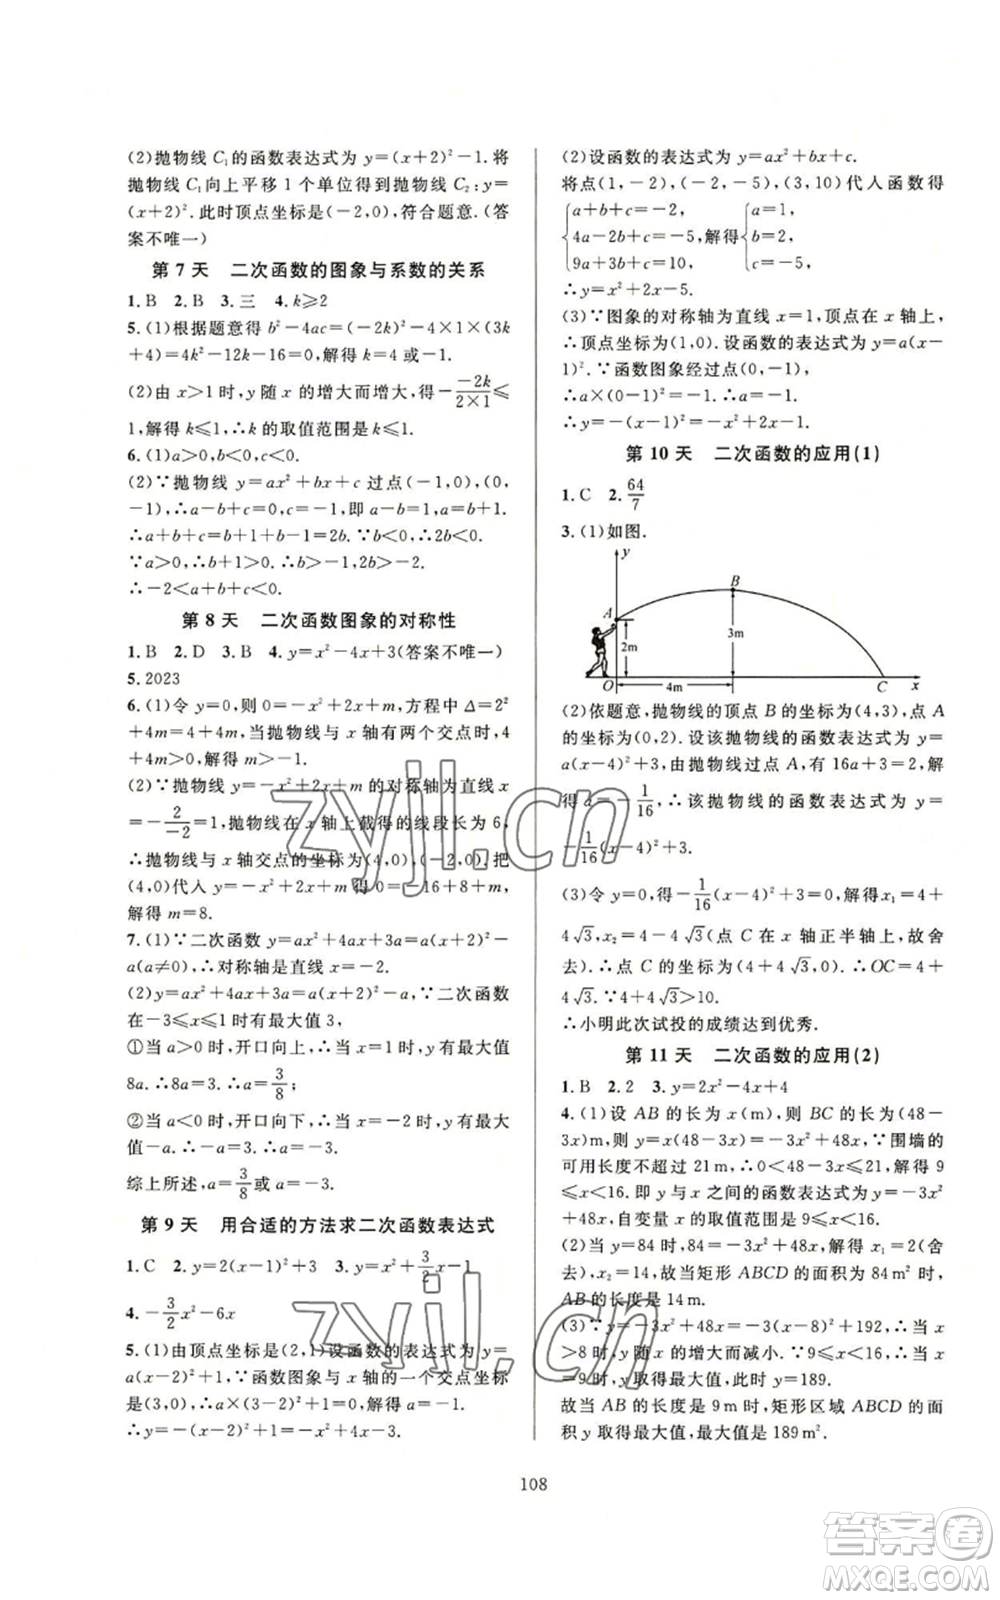 (2)抛物线 C₁的函数表达式为 y=(x+2)²-1. 将
抛物线 C₁向上平移 1 个单位得到抛物线 C₂:y=
(x+2)². 此时顶点坐标是(-2,0),符合题意.(答
案不唯一)
第 7 天 二次函数的图象与系数的关系
1. B 2. B 3. 三 4. k≥2
5. (1)根据题意得 b²-4ac=(-2k)²-4×1×(3k
+4)=4k²-12k-16=0,解得 k=4 或-1.
(2)由 x>1 时,y 随 x 的增大而增大,得-\frac{-2k}{2×1}≤
1,解得 k≤1,∴k 的取值范围是 k≤1.
6. (1)a>0,b<0,c<0.
(2)∵抛物线 y=ax²+bx+c 过点(-1,0),(0,
-1),∴a-b+c=0,c=-1,即 a-b=1,a=b+1.
∴a+b+c=b+1+b-1=2b. ∵b<0,∴a+b+c<0.
∵a>0,∴b>-1,∴2b>-2,∴a+b+c>-2.
∴-2<a+b+c<0.
第 8 天 二次函数图象的对称性
1. B 2. D 3. B 4. y=x²-4x+3(答案不唯一)
5. 2023
6. (1)令 y=0,则 0=-x²+2x+m,方程中 Δ=2²
+4m=4+4m,当抛物线与 x 轴有两个交点时,4
+4m>0,解得 m>-1.
(2)∵抛物线 y=-x²+2x+m 的对称轴为直线 x
=-\frac{2}{-2}=1,抛物线在 x 轴上截得的线段长为 6,
∴抛物线与 x 轴交点的坐标为(4,0),(-2,0). 把
(4,0)代入 y=-x²+2x+m,得-16+8+m=0,
解得 m=8.
7. (1)∵二次函数 y=ax²+4ax+3a=a(x+2)²-
a(a≠0),∴对称轴是直线 x=-2.
(2)y=ax²+4ax+3a=a(x+2)²-a,∵二次函数
在-3≤x≤1时有最大值 3,
①当 a>0时,开口向上,∴当 x=1时,y 有最大值
8a. ∴8a=3. ∴a=\frac{3}{8};
②当 a<0 时,开口向下,∴当 x=-2 时,y 有最大
值-a. ∴-a=3. ∴a=-3.
综上所述,a=\frac{3}{8}或 a=-3.
第 9 天 用合适的方法求二次函数表达式
1. C 2. y=2(x-1)²+3 3. y=x²+\frac{3}{2}x-1
4. -\frac{3}{2}x²-6x
5. (1)由顶点坐标是(2,1)设函数的表达式为 y=
a(x-2)²+1,∵函数图象与 x 轴的一个交点坐标
是(3,0),∴a×(3-2)²+1=0. ∴a=-1.
∴y=-(x-2)²+1=-x²+4x-3.
(2)设函数的表达式为 y=ax²+bx+c.
将点(1,-2),(-2,-5),(3,10)代人函数得
{a+b+c=-2, {a=1,
{4a-2b+c=-5,解得{b=2,
{9a+3b+c=10, {c=-5,
∴y=x²+2x-5.
(3)∵图象的对称轴为直线 x=1,顶点在 x 轴上,
∴顶点坐标为(1,0). 设函数的表达式为 y=a(x-
1)². ∵函数图象经过点(0,-1),
∴a×(0-1)²=-1. ∴a=-1.
∴y=-(x-1)²=-x²+2x-1.
第 10 天 二次函数的应用(1)
1. C 2. \frac{64}{7}
3. (1)如图.
y
B
A
3m
2m
O
4m
C
x
(2)依题意,抛物线的顶点 B 的坐标为(4,3),点 A
的坐标为(0,2). 设该抛物线的函数表达式为 y=
a(x-4)²+3,由抛物线过点 A,有 16a+3=2,解
得 a=-\frac{1}{16},∴该抛物线的函数表达式为 y=
-\frac{1}{16}(x-4)²+3.
(3)令 y=0,得-\frac{1}{16}(x-4)²+3=0,解得 x₁=4+
4√3,x₂=4-4√3(点 C 在 x 轴正半轴上,故舍
去). ∴点 C 的坐标为(4+4√3,0). ∴OC=4+
4√3. ∵4+4√3>10.
∴小明此次试投的成绩达到优秀.
第 11 天 二次函数的应用(2)
1. B 2. 2 3. y=2x²-4x+4
4. (1)设 AB 的长为 x(m),则 BC 的长为(48-
3x)m,则 y=x(48-3x)=-3x²+48x,∵围墙的
可用长度不超过 21 m,∴0<48-3x≤21,解得 9
≤x<16. 即 y 与 x 之间的函数表达式为 y=-3x²
+48x,自变量 x 的取值范围是 9≤x<16.
(2)当 y=84 时,84=-3x²+48x,解得 x₁=2(舍
去),x₂=14,故当矩形 ABCD 的面积为 84 m²时,
AB 的长度是 14 m.
(3)∵y=-3x²+48x=-3(x-8)²+192,∴当 x
>8 时,y 随 x 的增大而减小. ∵9≤x<16,∴当 x
=9时,y 取得最大值,最大值为 y=189.
故当 AB 的长度是 9 m 时,矩形区域 ABCD 的面
积 y 取得最大值,最大值是 189 m².
108
zyjl.cn
zyjl.cn
答案卷
MXQE.COM